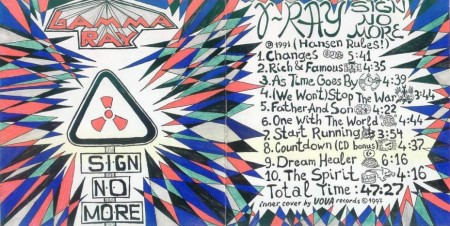 GAMMA
RAY
SIGN
NO
MORE
γ-RAY SIGN
NO
MORE
℗1991 (Hansen Rules!)
1. Changes 5:41
2. Rich & Famous 4:35
3. As Time Goes By 4:39
4. (We Wont) Stop The War 3:44
5. Father And Son 4:22
6. One With The World 4:44
7. Start Running 3:54
8. Countdown (CD bonus) 4:37
9. Dream Healer 6:16
10. The Spirit 4:16
Total Time: 47:27
inner cover by VOVA records ©1997